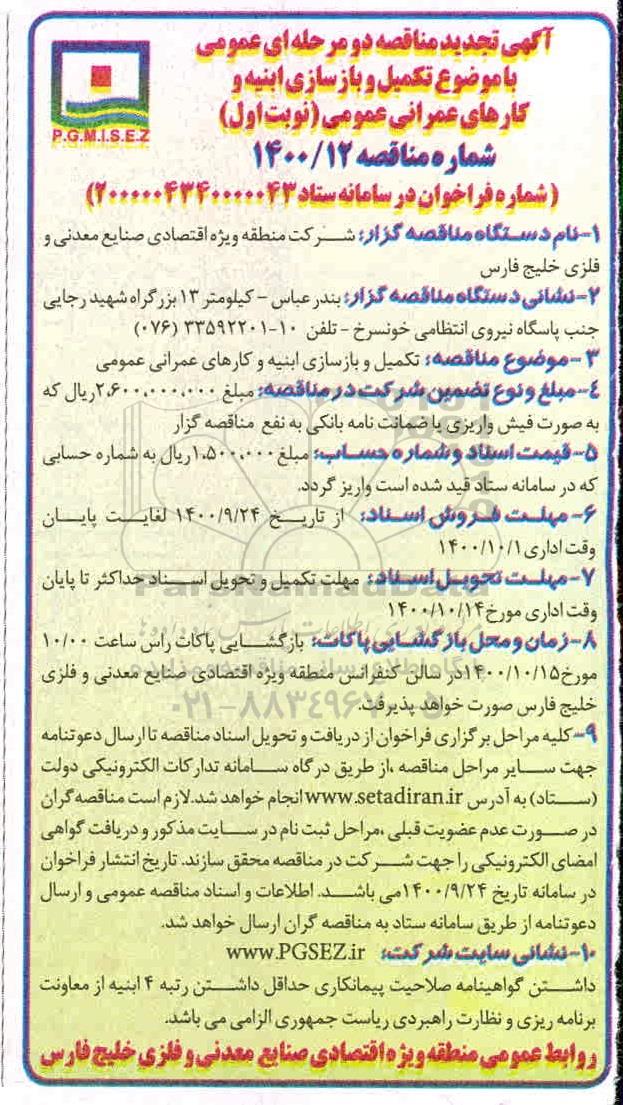 آگهی تجدید مناقصه دو مرحله ای عمومی
با موضوع تکمیل و بازسازی ابنیه و
کارهای عمرانی عمومی (نوبت اول)
P.G.M.I.S.E.Z
شماره مناقصه ۱۴۰۰/۱۲
(شماره فراخوان در سامانه ستاد ۲۰۰۰۰۰۴۳۴۰۰۰۰۰۴۳)
۱-نام دستگاه مناقصه گزار: شرکت منطقه ویژه اقتصادی صنایع معدنی و
فلزی خلیج فارس
۲-نشانی دستگاه مناقصه گزار: بندرعباس – کیلومتر ۱۳ بزرگراه شهید رجایی
جنب پاسگاه نیروی انتظامی خونسرخ – تلفن ۱۰-۳۳۵۹۲۲۰۱ (۰۷۶)
۳-موضوع مناقصه: تکمیل و بازسازی ابنیه و کارهای عمرانی عمومی
۴-مبلغ و نوع تضمین شرکت در مناقصه: مبلغ ۲,۶۰۰,۰۰۰,۰۰۰ریال که
به صورت فیش واریزی یا ضمانت نامه بانکی به نفع مناقصه گزار
۵-قیمت اسناد و شماره حساب: مبلغ ۱,۵۰۰,۰۰۰ ریال به شماره حسابی
که در سامانه ستاد قید شده است واریز گردد.
۶-مهلت فروش اسناد: از تاریخ ۱۴۰۰/۹/۲۴ لغایت پایان
وقت اداری ۱۴۰۰/۱۰/۱
۷-مهلت تحویل اسناد: مهلت تکمیل و تحویل اسناد حداکثر تا پایان
وقت اداری مورخ ۱۴۰۰/۱۰/۱۴
۸-زمان و محل بازگشایی پاکات: بازگشایی پاکات راس ساعت ۱۰/۰۰
مورخ ۱۴۰۰/۱۰/۱۵در سالن کنفرانس منطقه ویژه اقتصادی صنایع معدنی و فلزی
خلیج فارس صورت خواهد پذیرفت.
۰۲۱-۸۸۳۴۹۶۷۰-۵
۹-کلیه مراحل برگزاری فراخوان از دریافت و تحویل اسناد مناقصه تا ارسال دعوتنامه
جهت سایر مراحل مناقصه ،از طریق درگاه سامانه تدارکات الکترونیکی دولت
(ستاد) به آدرس www.setadiran.ir انجام خواهد شد.لازم است مناقصه گران
در صورت عدم عضویت قبلی ،مراحل ثبت نام در سایت مذکور و دریافت گواهی
امضای الکترونیکی را جهت شرکت در مناقصه محقق سازند. تاریخ انتشار فراخوان
در سامانه تاریخ ۱۴۰۰/۹/۲۴می باشد. اطلاعات و اسناد مناقصه عمومی و ارسال
دعوتنامه از طریق سامانه ستاد به مناقصه گران ارسال خواهد شد.
۱۰-نشانی سایت شرکت: www.PGSEZ.ir
داشتن گواهینامه صلاحیت پیمانکاری حداقل داشتن رتبه ۴ ابنیه از معاونت
برنامه ریزی و نظارت راهبردی ریاست جمهوری الزامی می باشد.
روابط عمومی منطقه ویژه اقتصادی صنایع معدنی و فلزی خلیج فارس